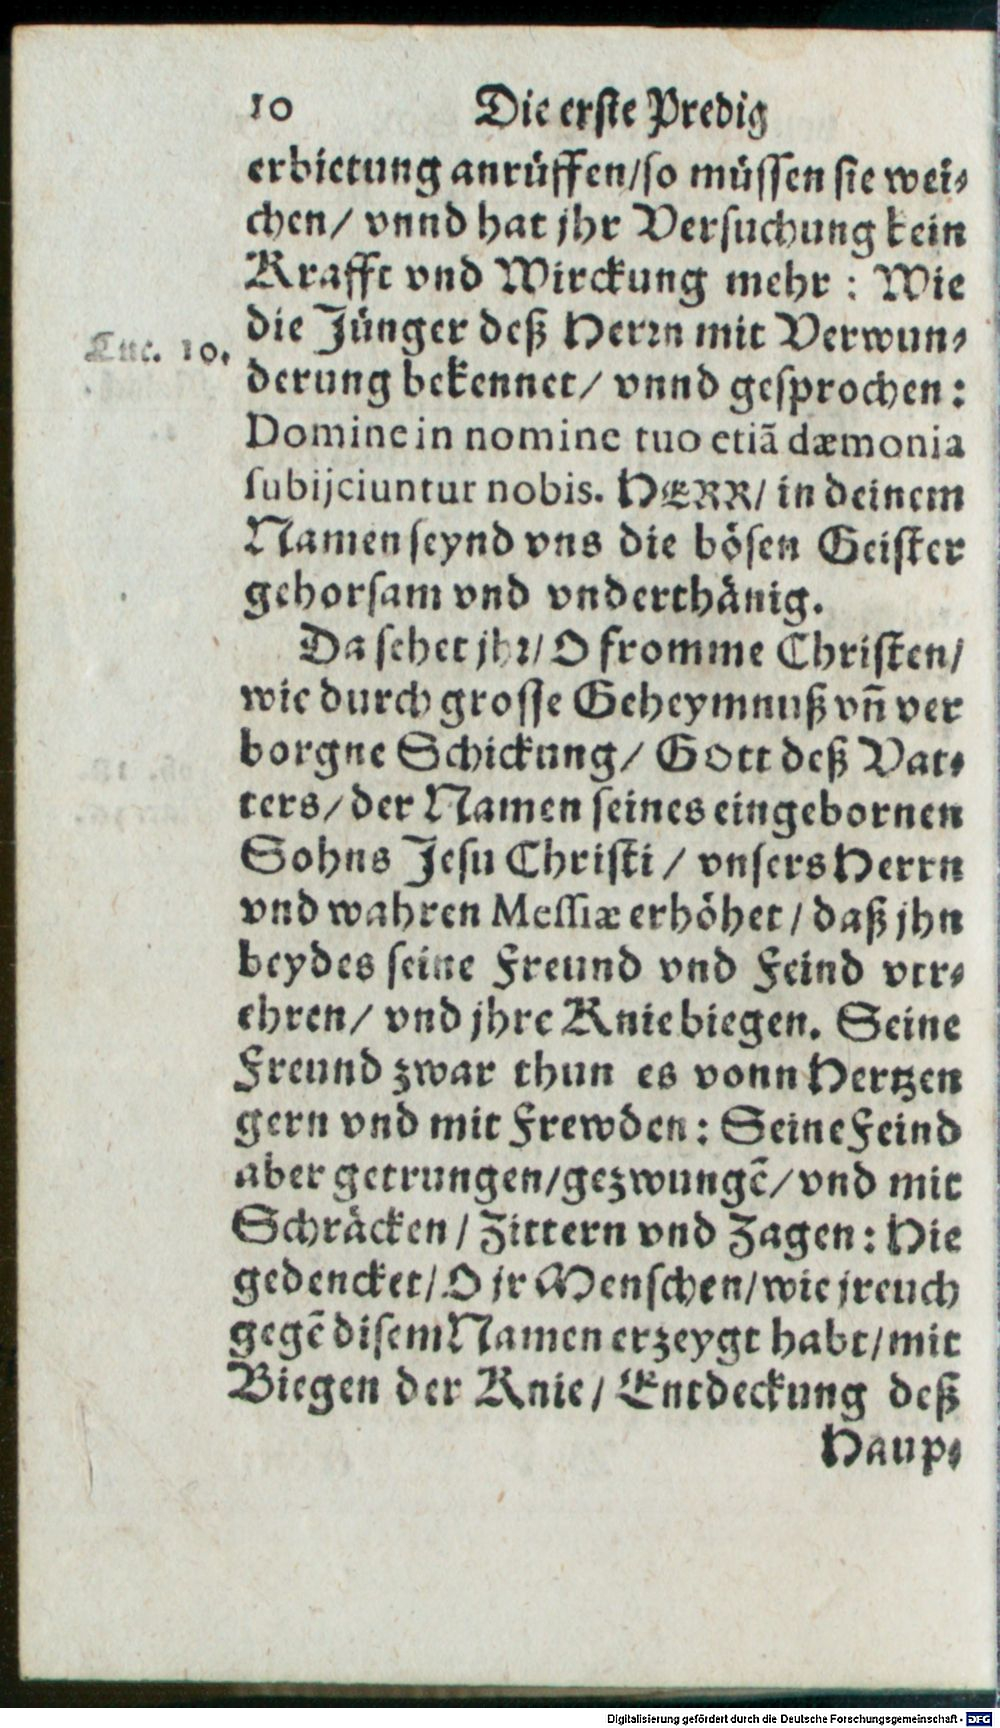 10 Die erste Predig
erbietung anrüffen/so müssen sie wei-
chen/ vnnd hat jhr Versuchung kein
Krafft vnd Wirckung mehr: Wie
die Jünger deß Herrn mit Verwun-
Luc. 10.
derung bekennet/ vnnd gesprochen:
Domine in nomine tuo etiã dæmonia
subijciuntur nobis. HERR/ in deinem
Namen seynd vns die bösen Geister
gehorsam vnd vnderthänig.
Da sehet jhr/ O fromme Christen/
wie durch grosse Geheymnuß vñ ver
borgne Schickung/ GOtt deß Vat-
ters/ der Namen seines eingebornen
Sohns Jesu Christi / vnsers Herrn
vnd wahren Messiæ erhöhet / daß jhn
beydes seine Freund vnd Feind ver-
ehren/ vnd jhre Knie biegen. Seine
Freund zwar thun es vonn Hertzen
gern vnd mit Frewden: Seine Feind
aber getrungen/gezwungẽ/ vnd mit
Schräcken / Zittern vnd Zagen: Hie
gedencket/ O jr Menschen/ wie jr euch
gegẽ disem Namen erzeygt habt/ mit
Biegen der Knie/ Entdeckung deß
Haup-
Digitalisierung gefördert durch die Deutsche Forschungsgemeinschaft - DFG